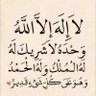 لَا إِلَٰهَ إِلَّا اللَّهُ
وَحْدَهُ لَا شَرِيكَ لَهُ
لَهُ الْمُلْكُ وَلَهُ الْحَمْدُ
وَهُوَ عَلَىٰ كُلِّ شَيْءٍ قَدِيرٌ